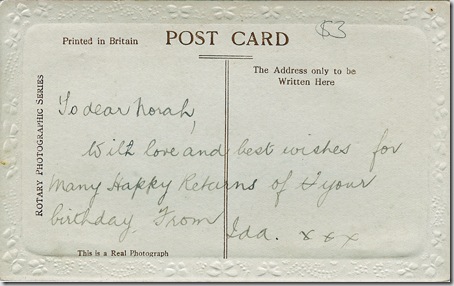 $3
Printed in Britain
POST CARD
The Address only to be
Written Here
ROTARY PHOTOGRAPHIC SERIES
To dear Norah,
With love and best wishes for
Many Happy Returns of your
birthday. From Ida. x x x
This is a Real Photograph